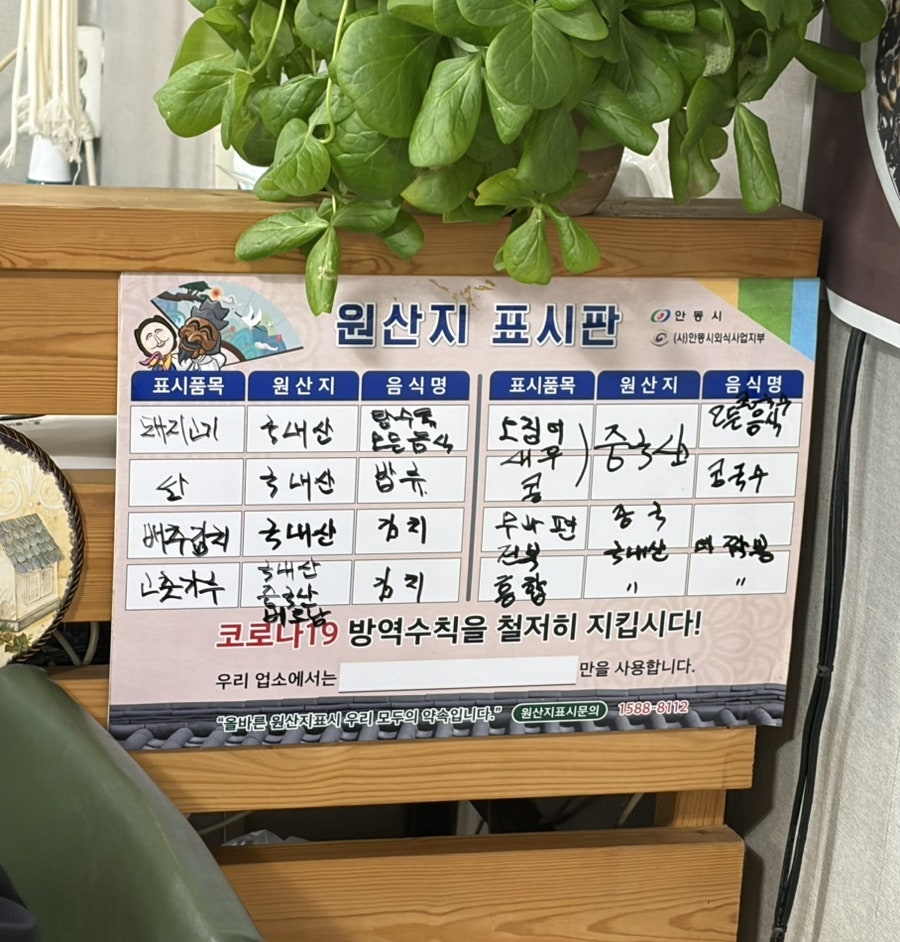 원산지 표시판
안동시
(사)안동시외식사업지부
표시품목 원산지 음식명
돼지고기 국내산 탕수육
모든음식
쌀 국내산 밥류
배추김치 국내산 김치
고춧가루 국내산 김치
중국산
베트남
표시품목 원산지 음식명
오징어 중국산 모든음식
새우
콩 콩국수
중국
전복 국내산 짬뽕
홍합 〃 〃
코로나19 방역수칙을 철저히 지킵시다!
우리 업소에서는 만을 사용합니다.
"올바른 원산지표시 우리 모두의 약속입니다."
원산지표시문의 1588-8112